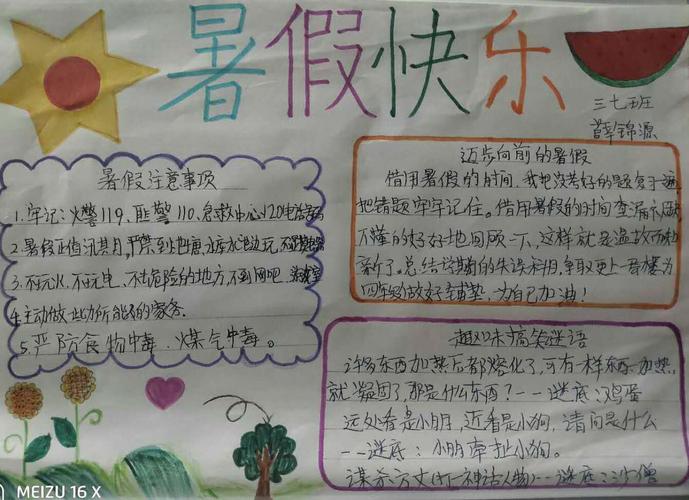 暑假快乐
三七班
薛锦源
暑假注意事项
1.牢记:火警119、匪警110、急救中心120电话号码
2.暑假正值汛期,严禁到池塘、水库边玩
3.不玩火、不玩电、不去危险的地方,不到网吧、
4.主动做些力所能及的家务.
5.严防食物中毒、煤气中毒。
迈步向前的暑假
借用暑假的时间,我把没考好的题复习一遍
把错题牢牢记住。借用暑假的时间查漏补缺
不懂的好好地回顾一下,这样就是温故而知
新了。总结学期的失误,争取更上一层楼为
四年级做好铺垫,为自己加油!
趣味搞笑谜语
许多东西加热后都熔化了,可有一样东西一加热,
就凝固了,那是什么东西?--谜底:鸡蛋
远处看是小明,近看是小狗,请问是什么
--谜底:小明牵扯小狗。
谋杀方丈(打一神话人物)--谜底:沙僧
MEIZU 16 X